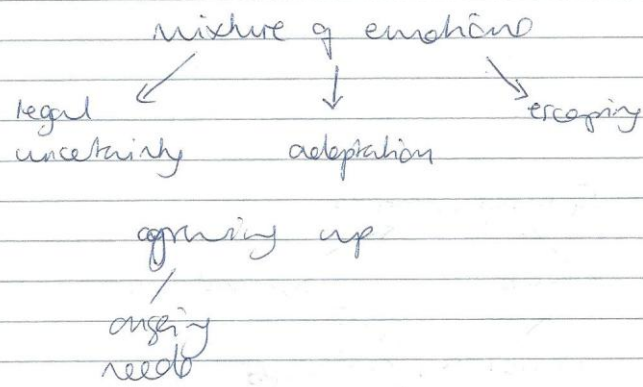 mixture of emotions
legal
uncertainty
adaptation
escaping
growing up
ongoing
needs